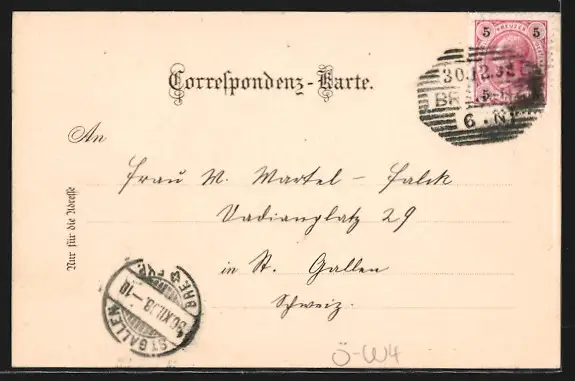 5 5
30.12.92
BR
6 . N
5
Correspondenz-Karte.
An
Frau W. Wartel - Falck
Vadianplatz 29
in St. Gallen
Schweiz.
Nur für die Adresse
ST. GALLEN
XII.98.-10
BRF. EXP.
Ö-W4